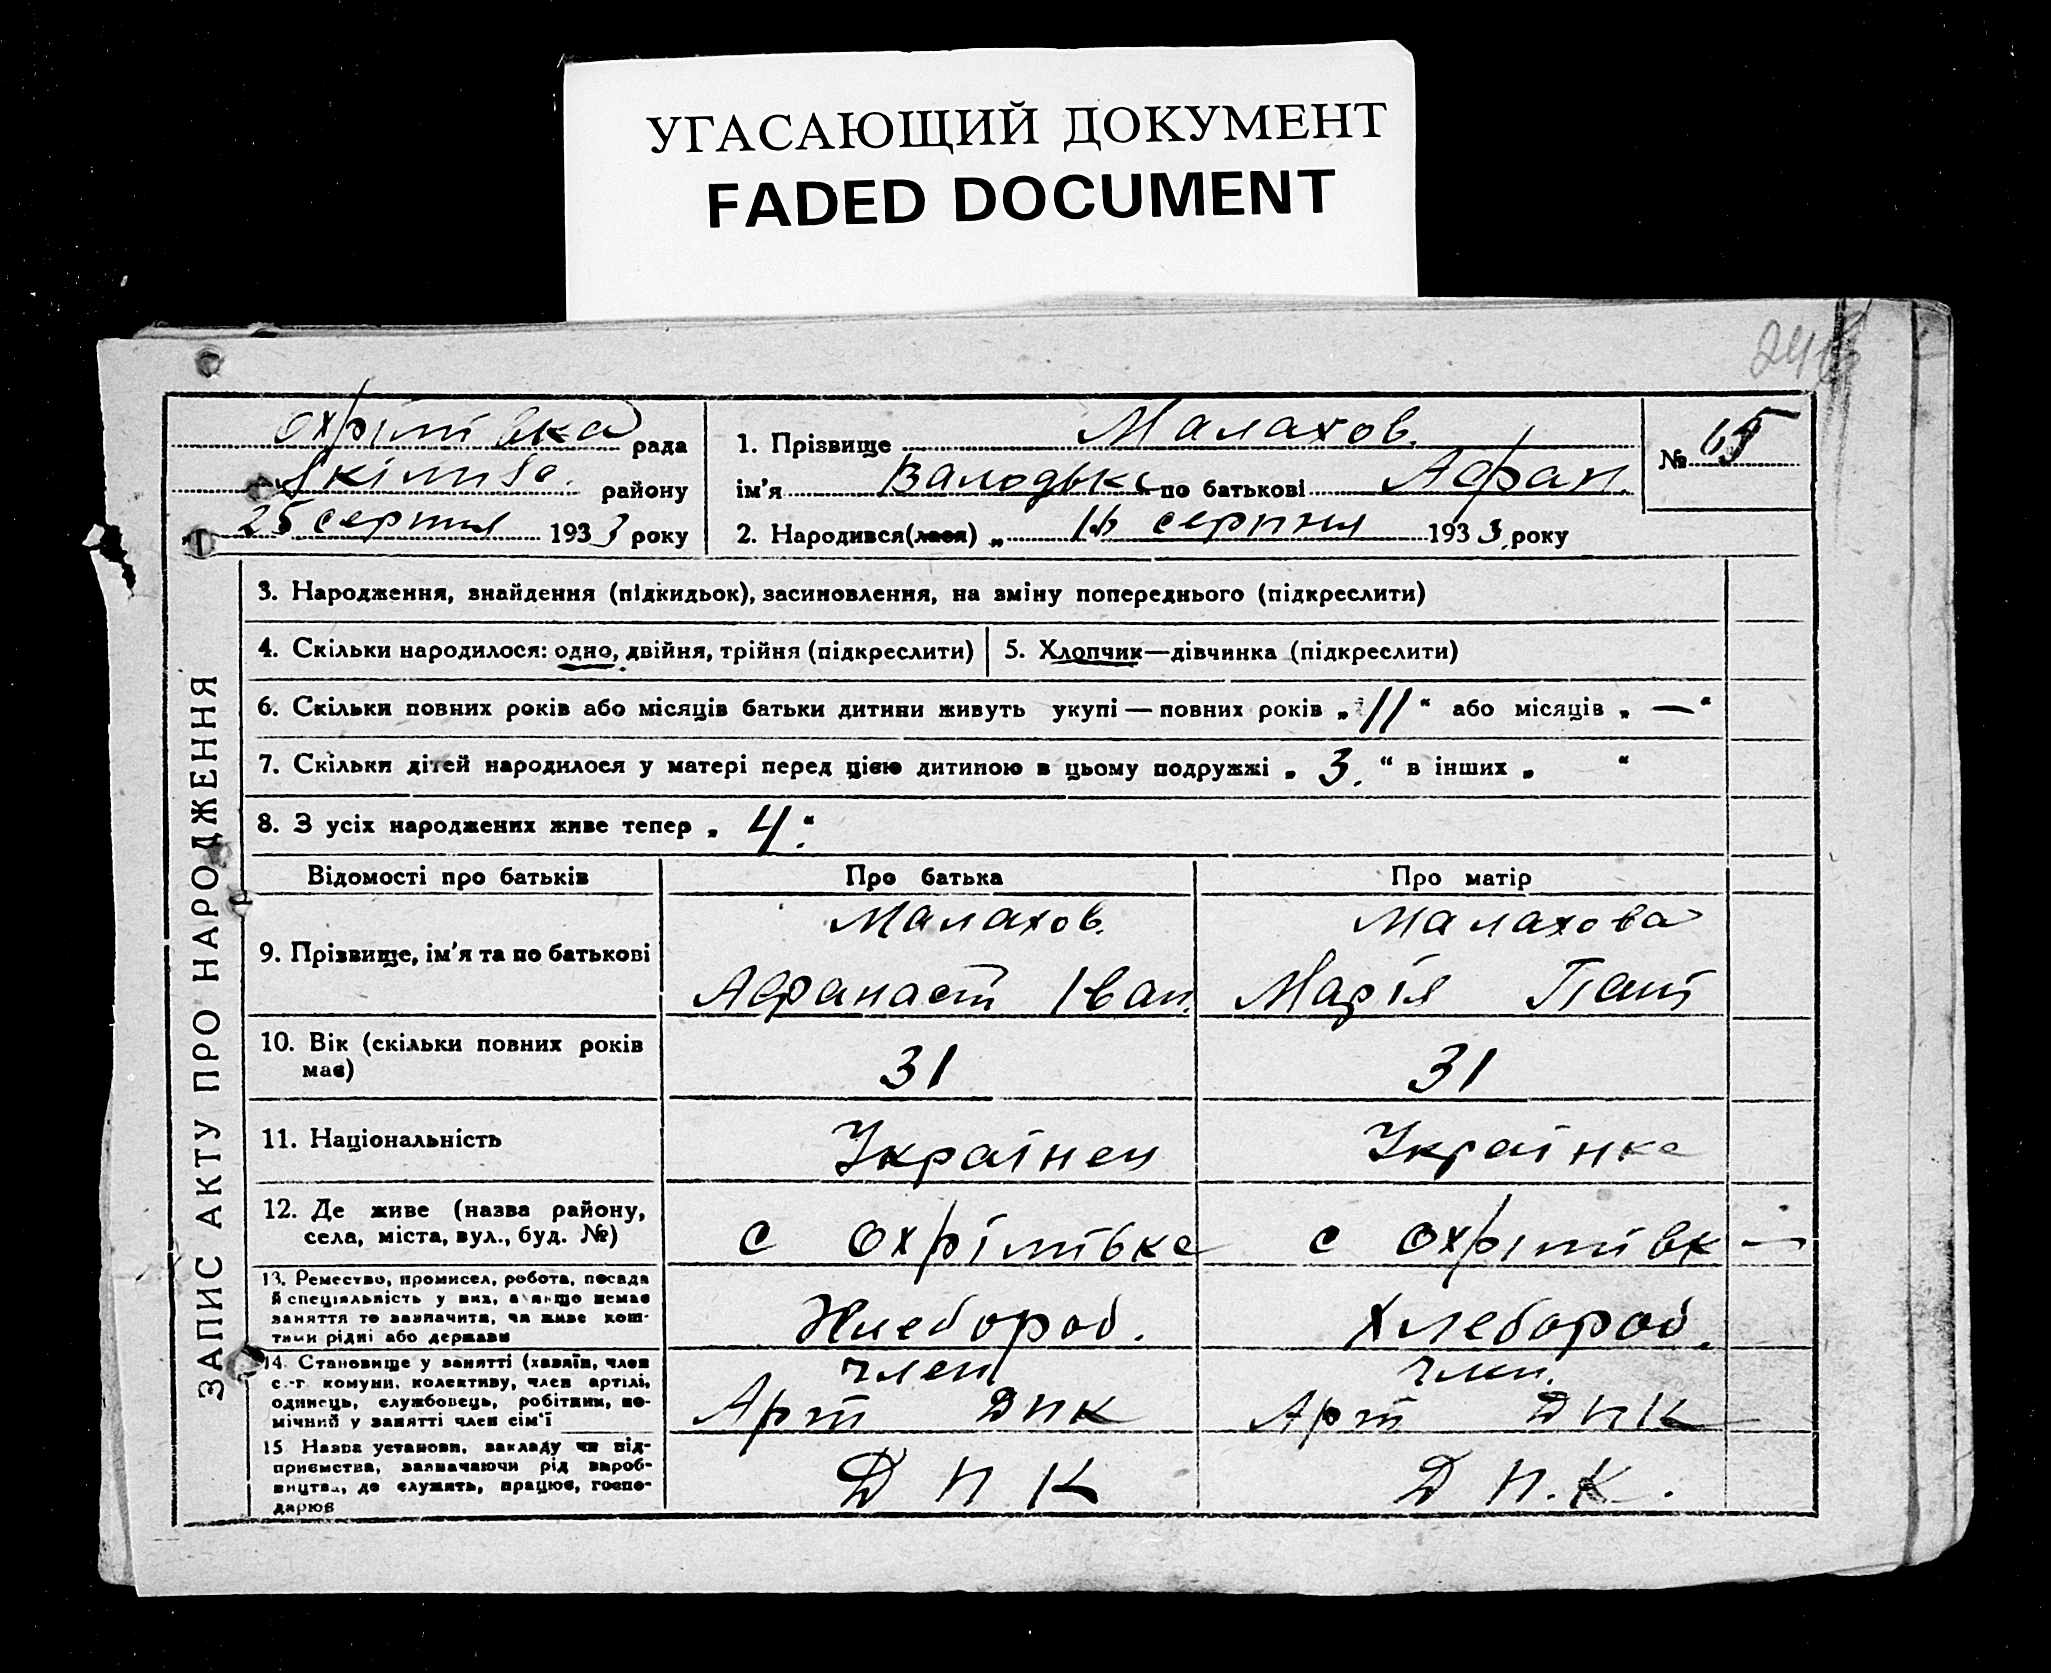 УГАСАЮЩИЙ ДОКУМЕНТ
FADED DOCUMENT
ЗАПИС АКТУ ПРО НАРОДЖЕННЯ
Охрімівка рада
району
25 серпня 1933 року
1. Прізвище Малахов.
ім'я Валодька по батькові Афан.
2. Народився(лася) „ 16 серпня 1933 року
№ 65
3. Народження, знайдення (підкидьок), засиновлення, на зміну попереднього (підкреслити)
4. Скільки народилося: одно, двійня, трійня (підкреслити)
5. Хлопчик—дівчинка (підкреслити)
6. Скільки повних років або місяців батьки дитини живуть укупі — повних років „ 11 “ або місяців „ — “
7. Скільки дітей народилося у матері перед цією дитиною в цьому подружжі „ 3. “ в інших „ “
8. З усіх народжених живе тепер „ 4. “
Відомості про батьків
Про батька
Про матір
9. Прізвище, ім'я та по батькові
Малахов.
Афанаст Іван.
Малахова
Марія
10. Вік (скільки повних років має)
31
31
11. Національність
Українец
Українка
12. Де живе (назва району,
села, міста, вул., буд. №)
с Охрімівка
с Охрімівк
13. Ремество, промисел, робота, посада
й спеціяльність у них, а якщо немає
заняття то зазначити, чи живе кош-
тами рідні або держави
Хлебороб.
Хлебороб.
14. Становище у занятті (хазяїн, член
с.-г. комуни, колективу, член артілі,
одинець, службовець, робітник, по-
мічний у занятті член сім'ї
член
Арт ДПК
член.
Арт ДПК
15 Назва установи, закладу чи під-
приємства, зазначаючи рід вироб-
ництва, де служить, працює, госпо-
дарює
Д П К
Д П. К.